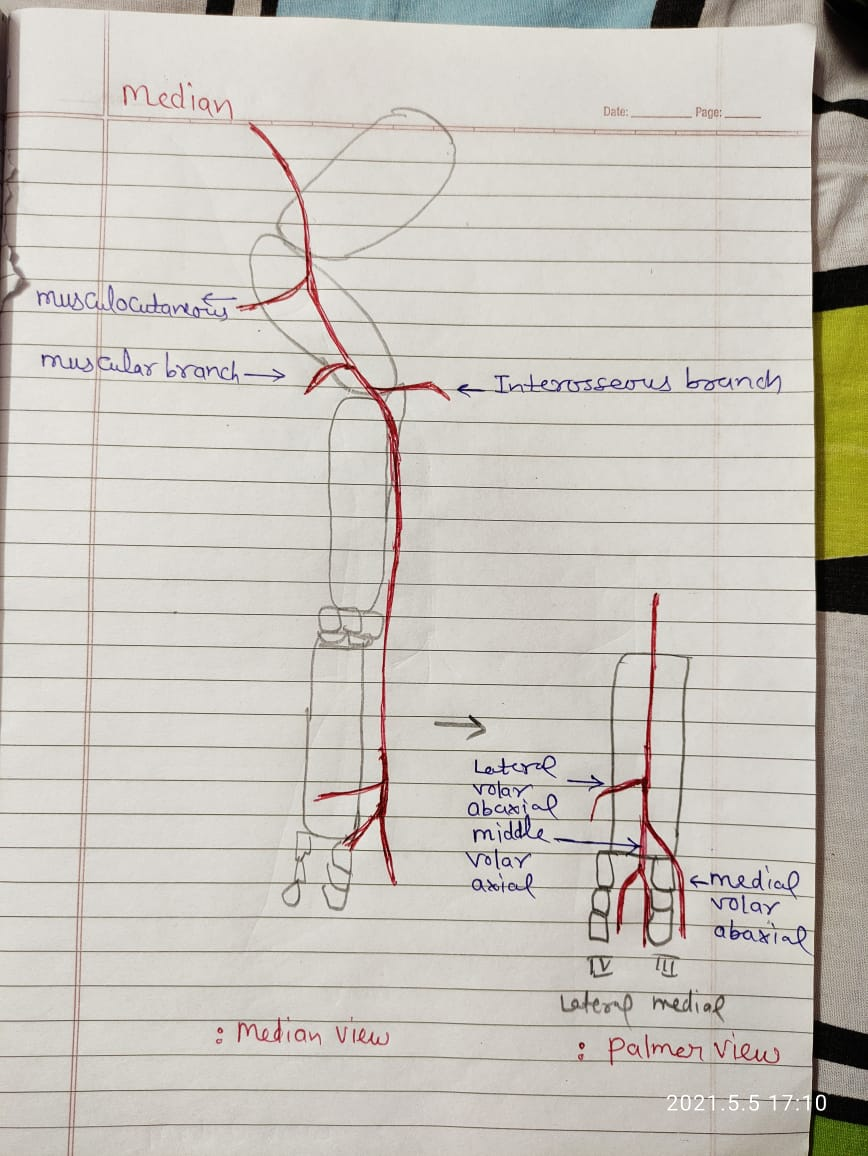 Median
Date: ________ Page: _____
musculocutaneous
muscular branch
Interosseous branch
Lateral
volar
abaxial
middle
volar
axial
medial
volar
abaxial
IV III
Lateral medial
: Median view
: palmer view
2021.5.5 17:10